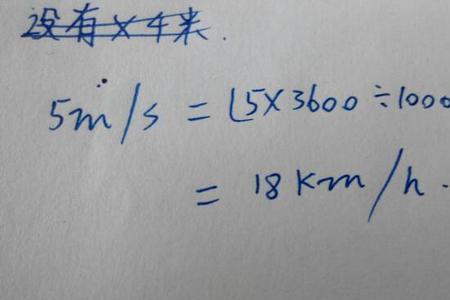 没有X千米.
5m/s = (5×3600÷1000
= 18Km/h.